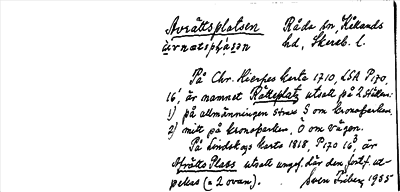 Avrättsplatsen Råda sn, Kållands
hd, Skarab. l.
På Chr. Hierpes karta 1710, LSA P170,
16¹, är namnet Rätteplatz utsatt på 2 ställen:
1) på allmänningen strax S om kronoparken,
2) mitt på kronoparken, Ö om vägen.
På Lindskogs karta 1818, P170 16³, är
Afrätts Plats utsatt ungef. där den fortf. ut-
pekas (= 2 ovan). Sven Friberg 1935